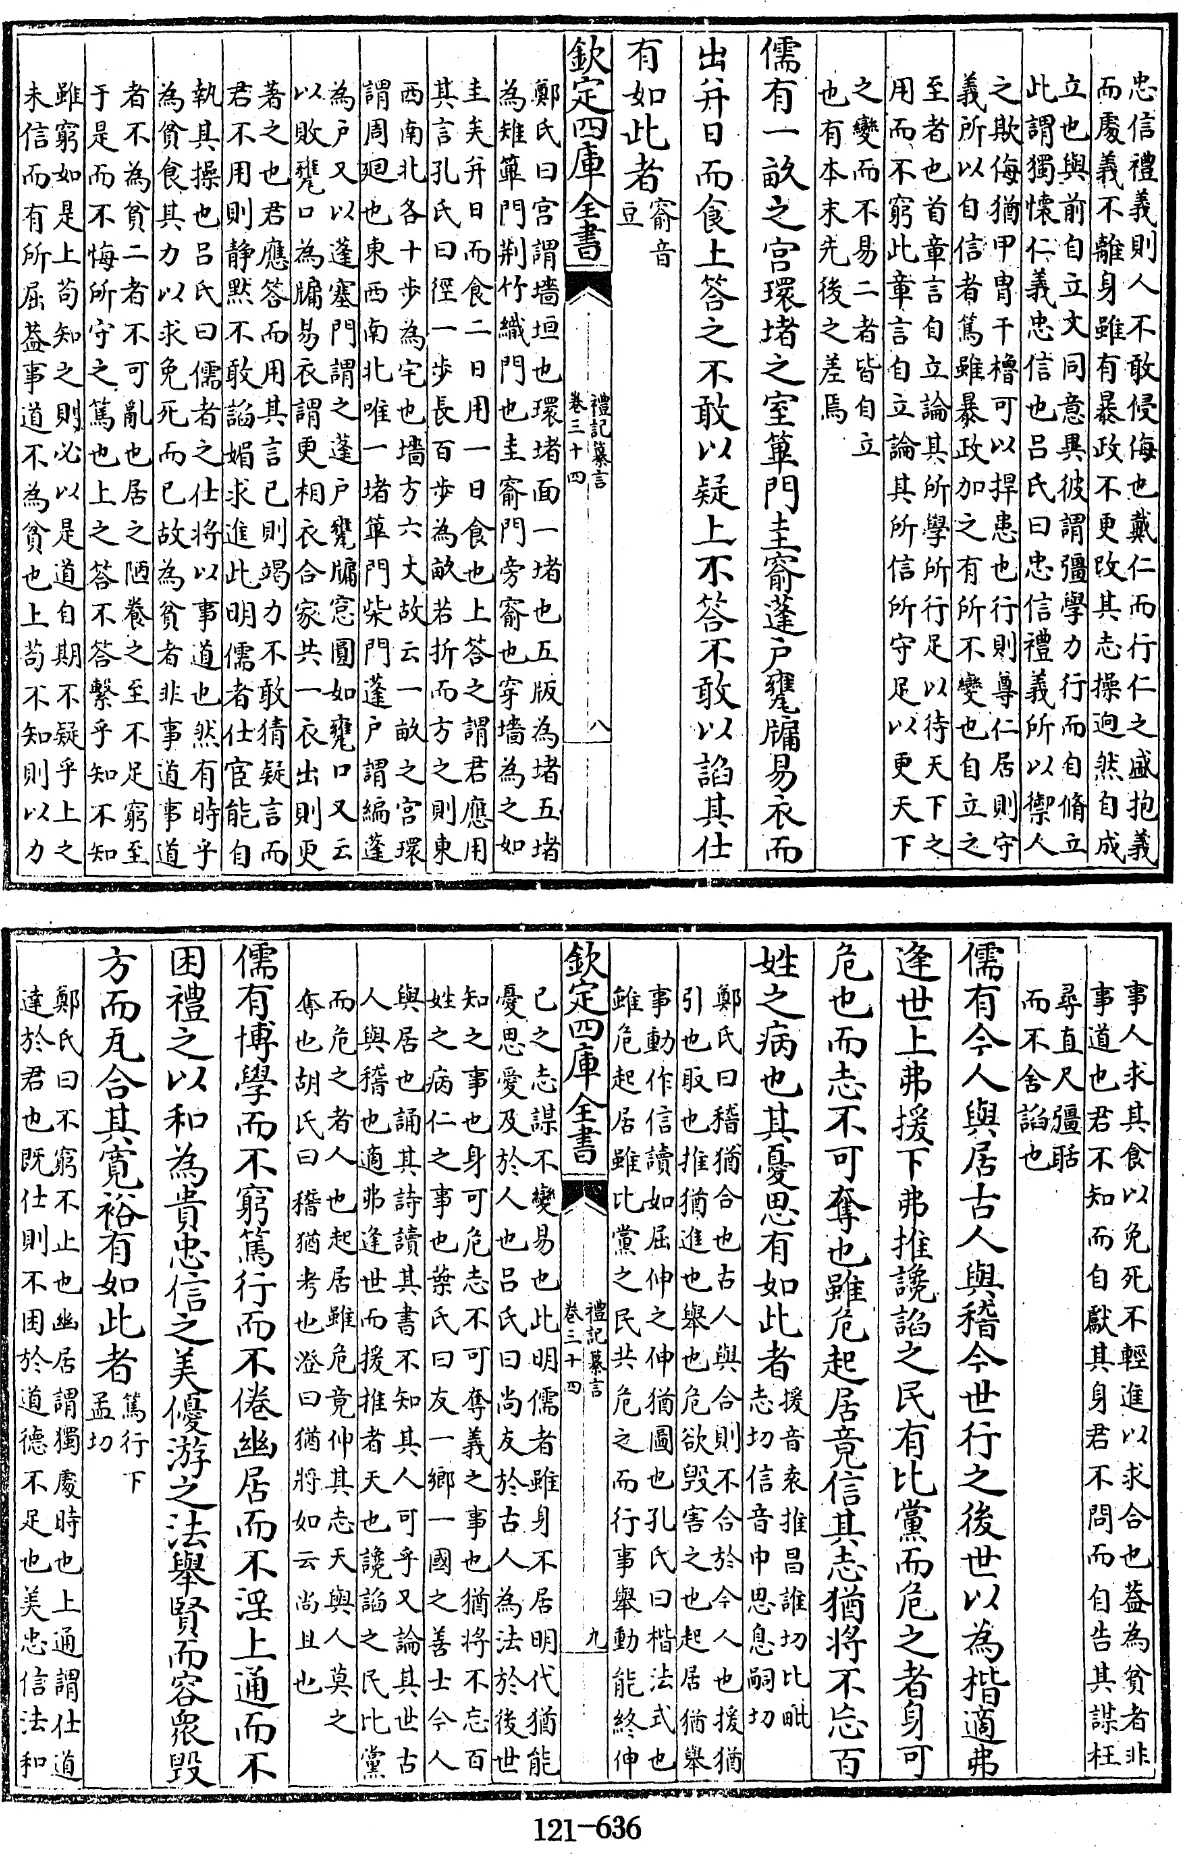 忠信禮義則人不敢侵侮也戴仁而行仁之盛抱義
而處義不離身雖有暴政不更改其志操迥然自成
立也與前自立文同意異彼謂彊學力行而自脩立
此謂獨懷仁義忠信也呂氏曰忠信禮義所以禦人
之欺侮猶甲冑干櫓可以捍患也行則尊仁居則守
義所以自信者篤雖暴政加之有所不變也自立之
至者也首章言自立論其所學所行足以待天下之
用而不窮此章言自立論其所信所守足以更天下
之變而不易二者皆自立
也有本末先後之差焉
儒有一畝之宫環堵之室篳門圭窬蓬戸甕牖易衣而
出并日而食上答之不敢以疑上不答不敢以諂其仕
有如此者
窬音
豆
欽定四庫全書
禮記纂言
卷三十四
八
鄭氏曰宫謂墻垣也環堵面一堵也五版為堵五堵
為雉篳門荆竹織門也圭窬門旁窬也穿墻為之如
圭矣并日而食二日用一日食也上答之謂君應用
其言孔氏曰徑一步長百步為畝若折而方之則東
西南北各十步為宅也墻方六丈故云一畝之宫環
謂周廻也東西南北唯一堵篳門柴門蓬戸謂編蓬
為戸又以蓬塞門謂之蓬戸甕牖窓圓如甕口又云
以敗甕口為牖易衣謂更相衣合家共一衣出則更
著之也君應答而用其言已則竭力不敢猜疑言而
君不用則静黙不敢諂媚求進此明儒者仕宦能自
執其操也呂氏曰儒者之仕將以事道也然有時乎
為貧食其力以求免死而已故為貧者非事道事道
者不為貧二者不可亂也居之陋養之至不足窮至
于是而不悔所守之篤也上之答不答繫乎知不知
雖窮如是上苟知之則必以是道自期不疑乎上之
未信而有所屈葢事道不為貧也上苟不知則以力
事人求其食以免死不輕進以求合也葢為貧者非
事道也君不知而自獻其身君不問而自告其謀枉
尋直尺彊聒
而不舍諂也
儒有今人與居古人與稽今世行之後世以為楷適弗
逢世上弗援下弗推讒諂之民有比黨而危之者身可
危也而志不可奪也雖危起居竟信其志猶將不忘百
姓之病也其憂思有如此者
援音袁推昌誰切比毗
志切信音申思息嗣切
鄭氏曰稽猶合也古人與合則不合於今人也援猶
引也取也推猶進也舉也危欲毁害之也起居猶舉
事動作信讀如屈伸之伸猶圖也孔氏曰楷法式也
雖危起居雖比黨之民共危之而行事舉動能終伸
欽定四庫全書
禮記纂言
卷三十四
九
已之志謀不變易也此明儒者雖身不居明代猶能
憂思愛及於人也呂氏曰尚友於古人為法於後世
知之事也身可危志不可奪義之事也猶將不忘百
姓之病仁之事也葉氏曰友一鄉一國之善士今人
與居也誦其詩讀其書不知其人可乎又論其世古
人與稽也適弗逢世而援推者天也讒諂之民比黨
而危之者人也起居雖危竟伸其志天與人莫之
奪也胡氏曰稽猶考也澄曰猶將如云尚且也
儒有博學而不窮篤行而不倦幽居而不淫上通而不
困禮之以和為貴忠信之美優游之法舉賢而容衆毁
方而瓦合其寛裕有如此者
篤行下
孟切
鄭氏曰不窮不止也幽居謂獨處時也上通謂仕道
達於君也既仕則不困於道德不足也美忠信法和
121-636